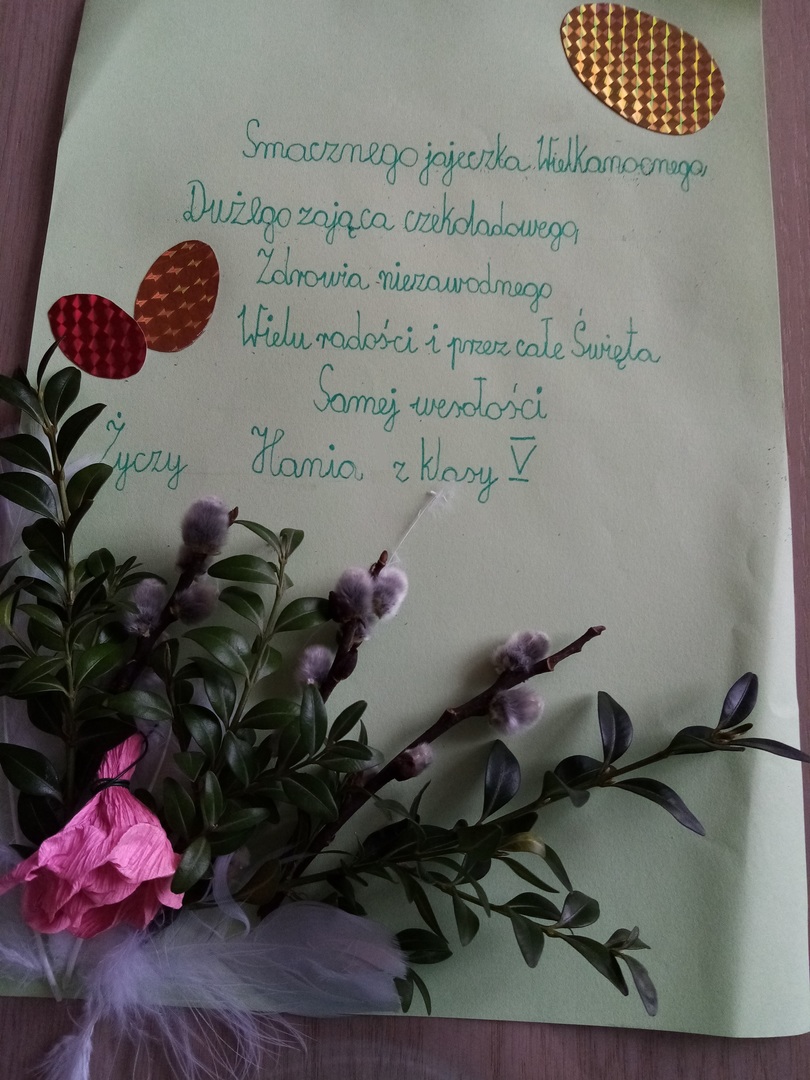 Smacznego jajeczka Wielkanocnego
Dużego zająca czekoladowego
Zdrowia niezawodnego
Wielu radości i przez całe Święta
Samej wesołości
Życzy Hania z klasy V